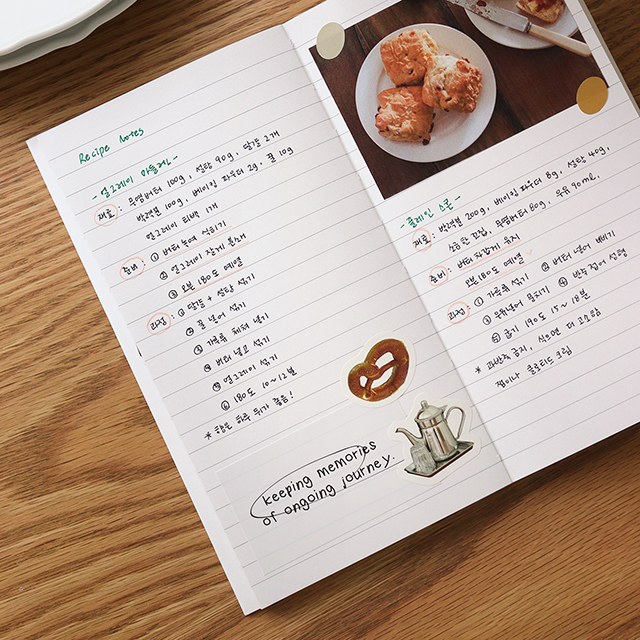 Recipe Notes
- 얼그레이 마들렌 -
재료 : 무염버터 100g, 설탕 90g, 달걀 2개
박력분 100g, 베이킹 파우더 2g, 꿀 10g
얼그레이 티백 1개
준비 : ① 버터 녹여 식히기
② 얼그레이 잘게 분쇄
③ 오븐 180도 예열
과정 : ① 달걀 + 설탕 섞기
② 꿀 넣어 섞기
③ 가루류 체쳐 넣기
④ 버터 넣고 섞기
⑤ 얼그레이 섞기
⑥ 180도 10~12분
* 향은 하루 뒤가 좋음!
keeping memories
of ongoing journey.
- 플레인 스콘 -
재료 : 박력분 200g, 베이킹파우더 8g, 설탕 40g,
소금 한 꼬집, 무염버터 60g, 우유 90ml,
준비 : 버터 차갑게 유지
오븐 180도 예열
과정 : ① 가루류 섞기 ② 버터 넣어 비비기
③ 우유넣어 뭉치기 ④ 반죽 접어 성형
⑤ 굽기 190도 15~18분
* 과반죽 금지, 식으면 더 고소함
잼이나 클로티드 크림